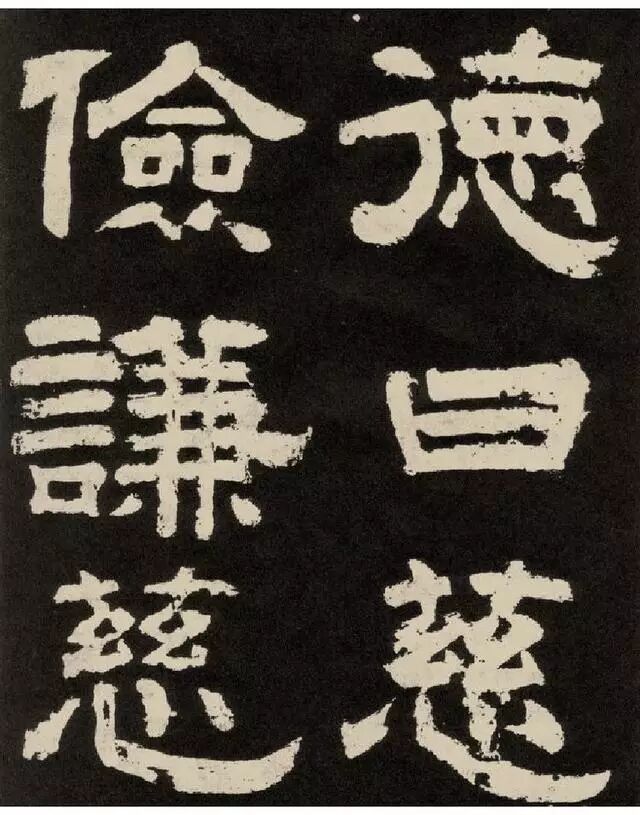 德曰慈
儉謙慈